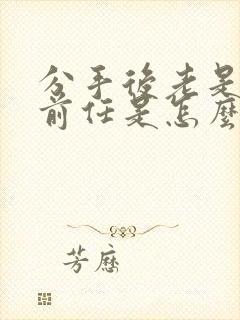 分手後老是
前任是怎麼
芳歷